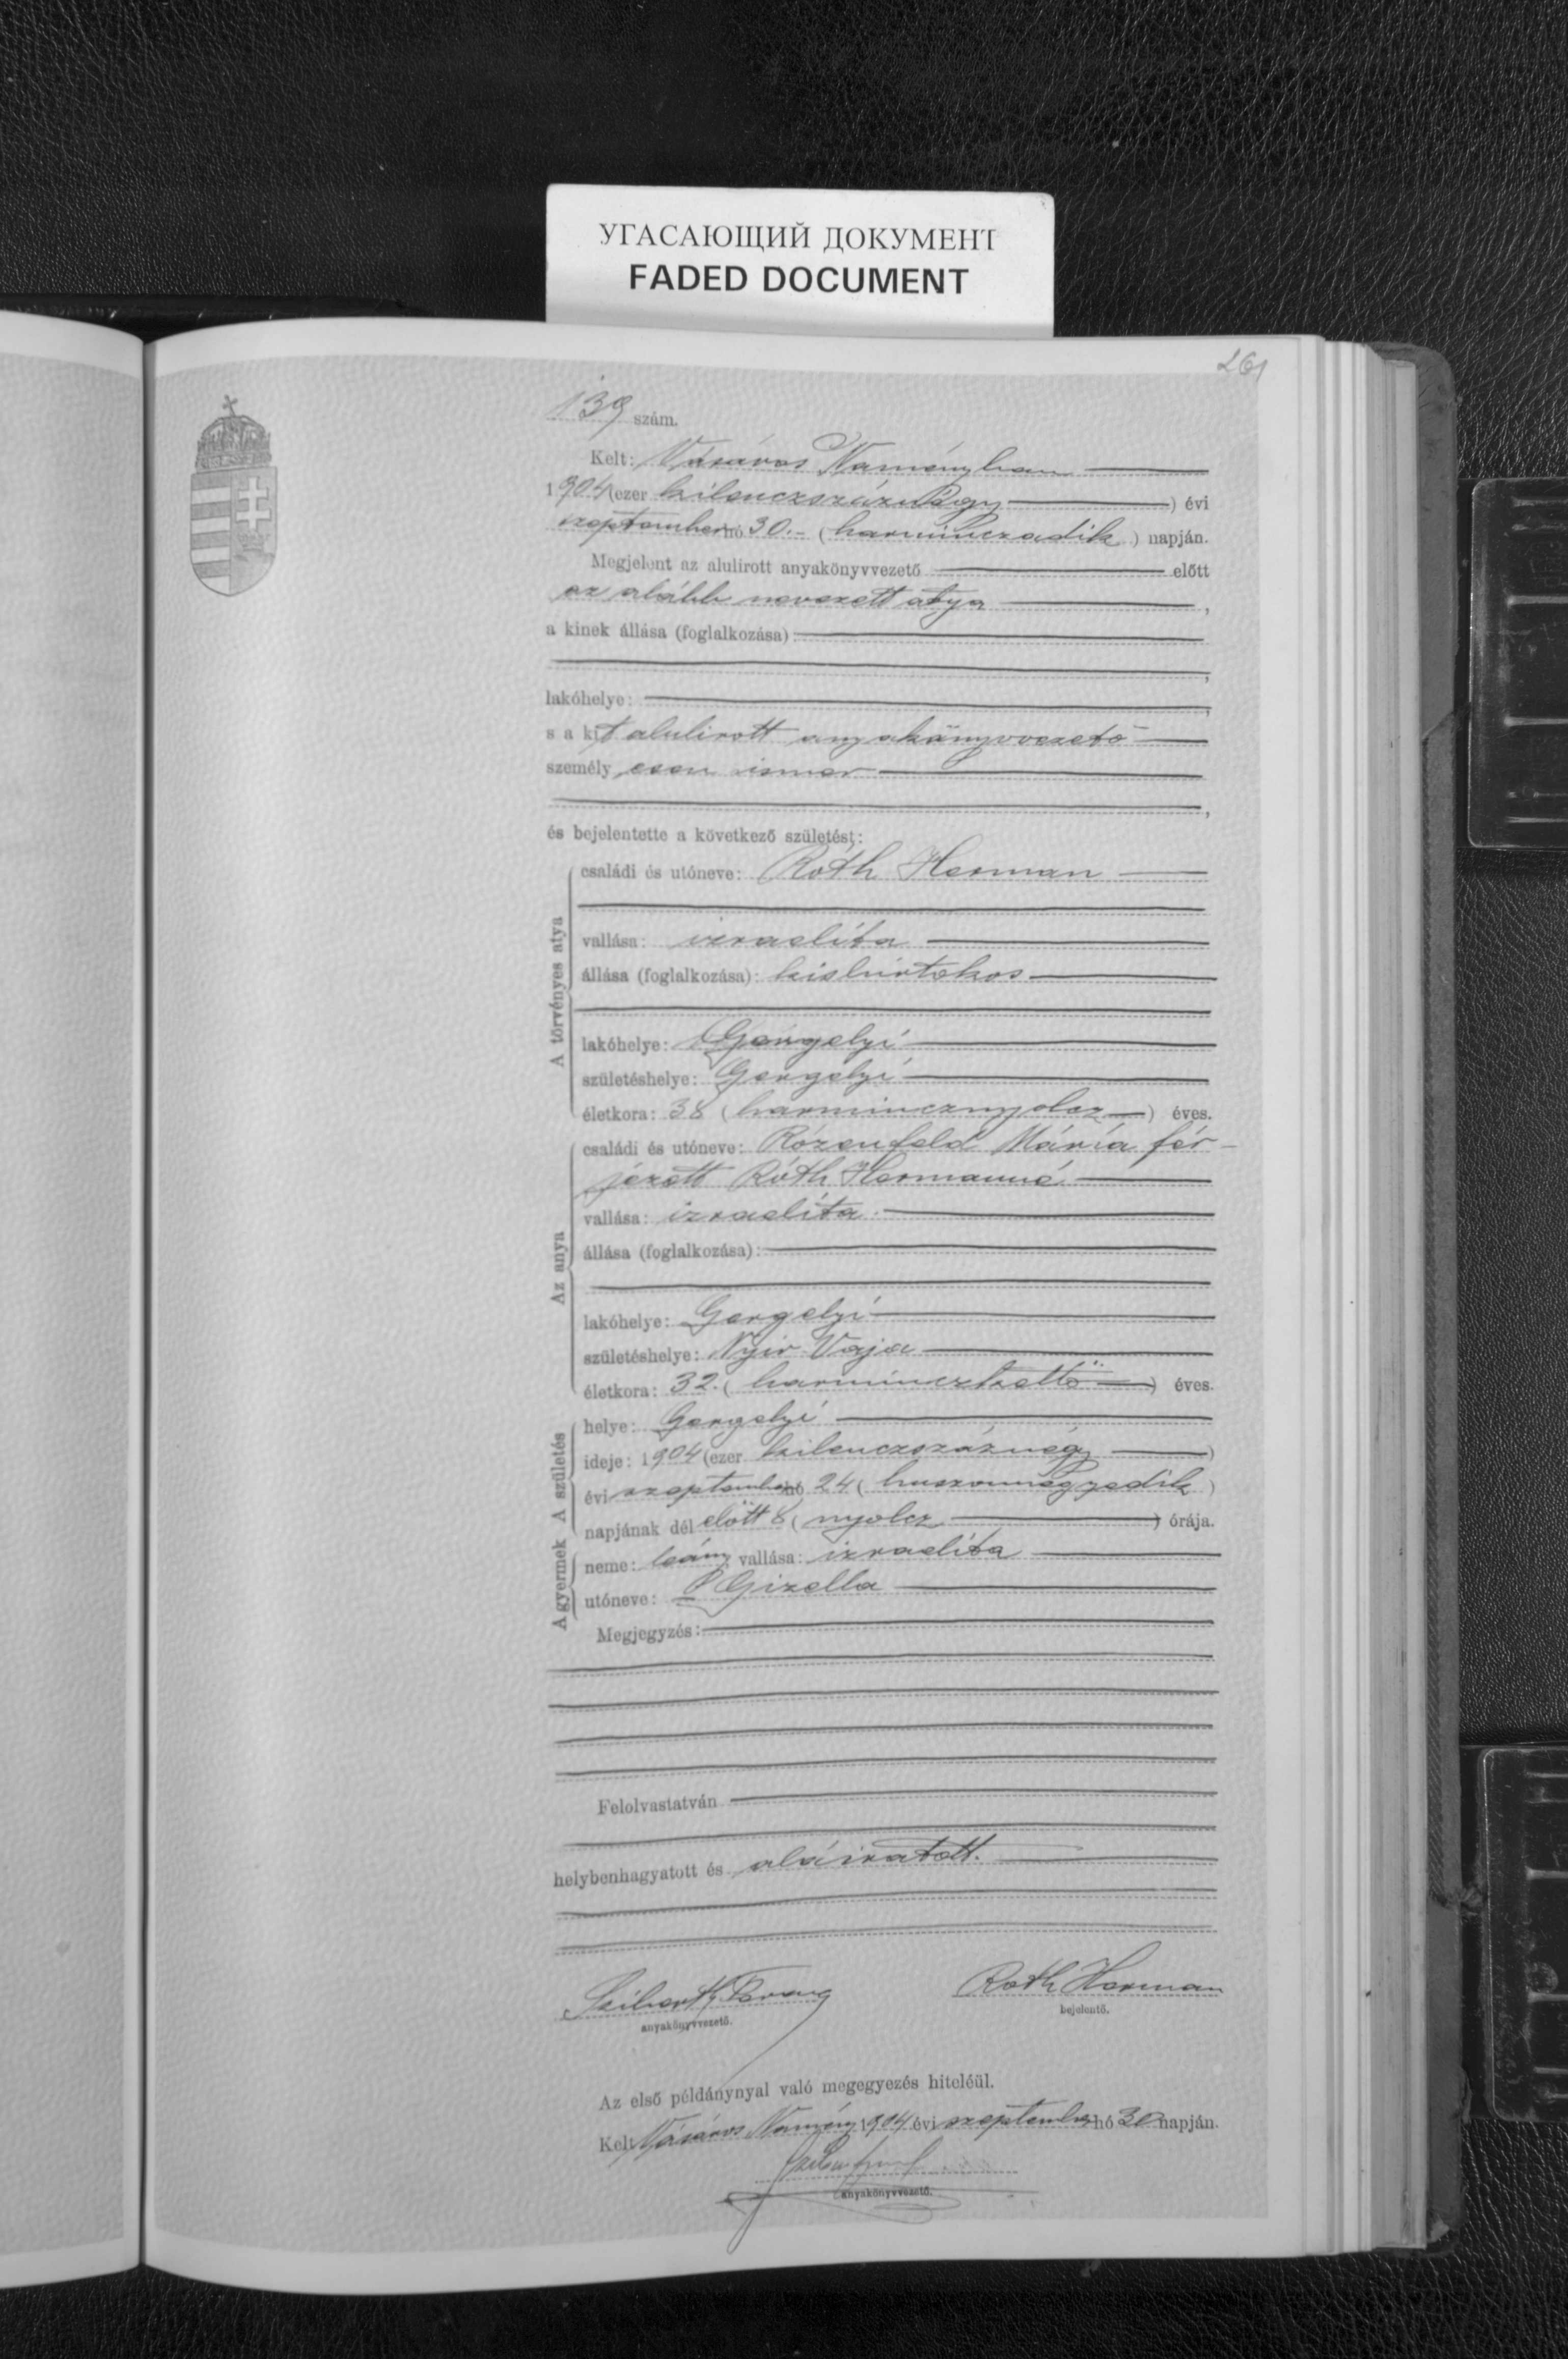 УГАСАЮЩИЙ ДОКУМЕНТ
FADED DOCUMENT
261
139 szám.
Kelt: Vásáros Naményban
1904 (ezer kilenczszáznégy) évi
szeptember hó 30.- (harminczadik) napján.
Megjelent az alulirott anyakönyvvezető előtt
az alább nevezett atya,
a kinek állása (foglalkozása):
lakóhelye:
s a kit alulirott anyakönyvvezető
személyesen ismer
és bejelentette a következő születést:
A törvényes atya
családi és utóneve: Róth Herman
vallása: izraelita
állása (foglalkozása): kisbirtokos
lakóhelye: Gergelyi
születéshelye: Gergelyi
életkora: 38 (harmincznyolcz) éves.
Az anya
családi és utóneve: Rózenfeld Mária fér-
jezett Róth Hermanné
vallása: izraelita
állása (foglalkozása):
lakóhelye: Gergelyi
születéshelye: Nyir Vaja
életkora: 32. (harminczkettő) éves.
A születés
helye: Gergelyi
ideje: 1904 (ezer kilenczszáznégy)
évi szeptember hó 24 (huszonnégyedik)
napjának dél előtt 8 (nyolcz) órája.
A gyermek
neme: leány vallása: izraelita
utóneve: Gizella
Megjegyzés:
Felolvastatván
helybenhagyatott és aláiratott.
Róth Herman
anyakönyvvezető.
bejelentő.
Az első példánynyal való megegyezés hiteléül.
Kelt Vásáros Namény 1904 évi szeptember hó 30 napján.
anyakönyvvezető.